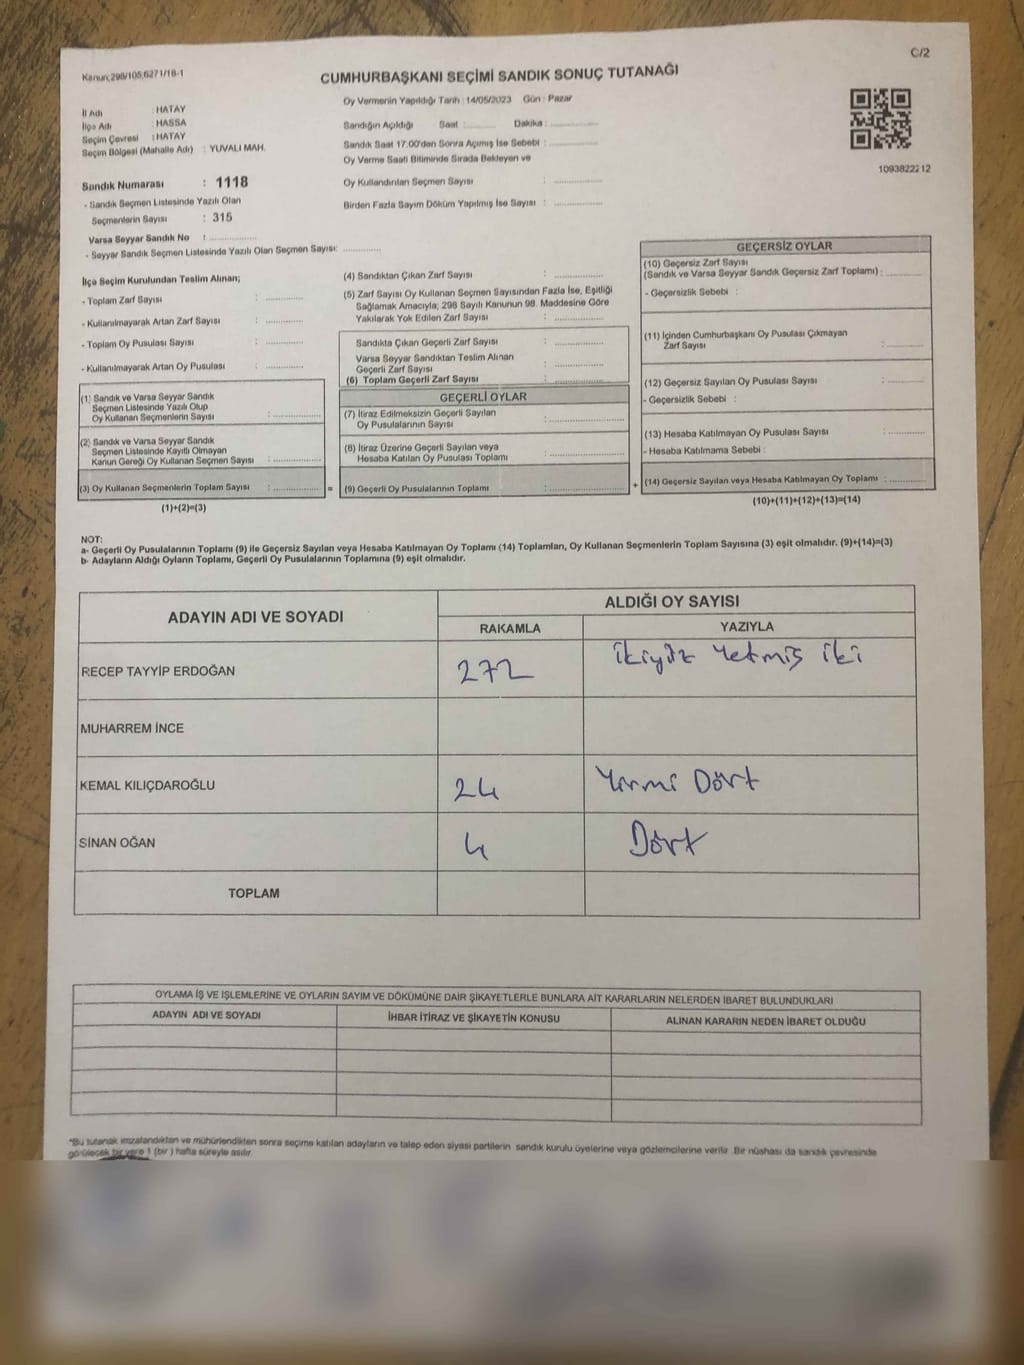 C/2
Kanun;298/105,6271/18-1
CUMHURBAŞKANI SEÇİMİ SANDIK SONUÇ TUTANAĞI
Oy Vermenin Yapıldığı Tarih : 14/05/2023 Gün : Pazar
İl Adı : HATAY
İlçe Adı : HASSA
Seçim Çevresi : HATAY
Seçim Bölgesi (Mahalle Adı) : YUVALI MAH.
Sandığın Açıldığı Saat :............ Dakika :..............
Sandık Saat 17.00'den Sonra Açımış İse Sebebi :..............
Oy Verme Saati Bitiminde Sırada Bekleyen ve
Oy Kullandırılan Seçmen Sayısı : ..............
Birden Fazla Sayım Döküm Yapılmış İse Sayısı : ..............
1093822212
Sandık Numarası : 1118
- Sandık Seçmen Listesinde Yazılı Olan
Seçmenlerin Sayısı : 315
Varsa Seyyar Sandık No : ..............
- Seyyar Sandık Seçmen Listesinde Yazılı Olan Seçmen Sayısı: ..............
İlçe Seçim Kurulundan Teslim Alınan;
- Toplam Zarf Sayısı : ..............
- Kullanılmayarak Artan Zarf Sayısı : ..............
- Toplam Oy Pusulası Sayısı : ..............
- Kullanılmayarak Artan Oy Pusulası : ..............
(1) Sandık ve Varsa Seyyar Sandık
Seçmen Listesinde Yazılı Olup
Oy Kullanan Seçmenlerin Sayısı : ..............
(2) Sandık ve Varsa Seyyar Sandık
Seçmen Listesinde Kayıtlı Olmayan
Kanun Gereği Oy Kullanan Seçmen Sayısı : ..............
(3) Oy Kullanan Seçmenlerin Toplam Sayısı : .............. =
(1)+(2)=(3)
(4) Sandıktan Çıkan Zarf Sayısı : ..............
(5) Zarf Sayısı Oy Kullanan Seçmen Sayısından Fazla İse, Eşitliği
Sağlamak Amacıyla; 298 Sayılı Kanunun 98. Maddesine Göre
Yakılarak Yok Edilen Zarf Sayısı : ..............
Sandıkta Çıkan Geçerli Zarf Sayısı : ..............
Varsa Seyyar Sandıktan Teslim Alınan
Geçerli Zarf Sayısı : ..............
(6) Toplam Geçerli Zarf Sayısı : ..............
GEÇERLİ OYLAR
(7) İtiraz Edilmeksizin Geçerli Sayılan
Oy Pusulalarının Sayısı : ..............
(8) İtiraz Üzerine Geçerli Sayılan veya
Hesaba Katılan Oy Pusulası Toplamı : ..............
(9) Geçerli Oy Pusulalarının Toplamı : .............. +
GEÇERSİZ OYLAR
(10) Geçersiz Zarf Sayısı
(Sandık ve Varsa Seyyar Sandık Geçersiz Zarf Toplamı) : ..............
- Geçersizlik Sebebi :
(11) İçinden Cumhurbaşkanı Oy Pusulası Çıkmayan
Zarf Sayısı : ..............
(12) Geçersiz Sayılan Oy Pusulası Sayısı : ..............
- Geçersizlik Sebebi :
(13) Hesaba Katılmayan Oy Pusulası Sayısı : ..............
- Hesaba Katılmama Sebebi :
(14) Geçersiz Sayılan veya Hesaba Katılmayan Oy Toplamı : ..............
(10)+(11)+(12)+(13)=(14)
NOT:
a- Geçerli Oy Pusulalarının Toplamı (9) ile Geçersiz Sayılan veya Hesaba Katılmayan Oy Toplamı (14) Toplamları, Oy Kullanan Seçmenlerin Toplam Sayısına (3) eşit olmalıdır. (9)+(14)=(3)
b- Adayların Aldığı Oyların Toplamı, Geçerli Oy Pusulalarının Toplamına (9) eşit olmalıdır.
ADAYIN ADI VE SOYADI ALDIĞI OY SAYISI
RAKAMLA YAZIYLA
RECEP TAYYİP ERDOĞAN 272 İkiyüz Yetmiş iki
MUHARREM İNCE
KEMAL KILIÇDAROĞLU 24 Yirmi Dört
SİNAN OĞAN 4 Dört
TOPLAM
OYLAMA İŞ VE İŞLEMLERİNE VE OYLARIN SAYIM VE DÖKÜMÜNE DAİR ŞİKAYETLERLE BUNLARA AİT KARARLARIN NELERDEN İBARET BULUNDUKLARI
ADAYIN ADI VE SOYADI İHBAR İTİRAZ VE ŞİKAYETİN KONUSU ALINAN KARARIN NEDEN İBARET OLDUĞU
*Bu tutanak imzalandıktan ve mühürlendikten sonra seçime katılan adayların ve talep eden siyasi partilerin sandık kurulu üyelerine veya gözlemcilerine verilir .Bir nüshası da sandık çevresinde
görülecek bir yere 1 (bir ) hafta süreyle asılır.